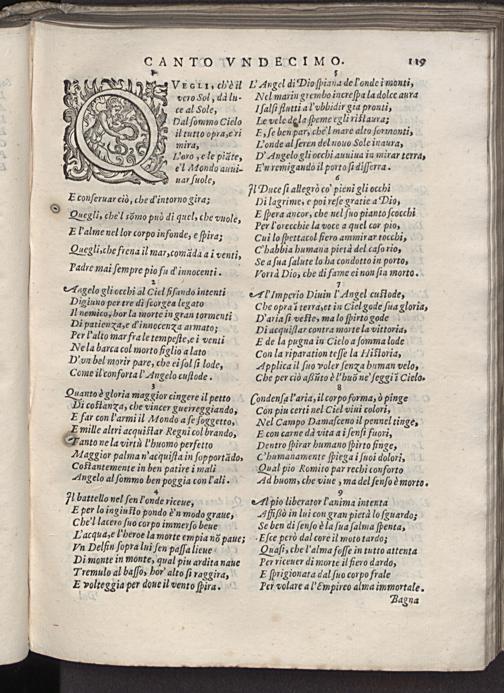 CANTO VNDECIMO. 119
1
QVEGLI, ch'è il
vero Sol, dà lu-
ce al Sole,
Dal sommo Cielo
il tutto opra, e ri
mira,
L'oro, e le piãte,
e'l Mondo auui-
uar suole,
E conseruar ciò, che d'intorno gira;
Quegli, che'l sõmo può di quel, che vuole,
E l'alme nel lor corpo infonde, e spira;
Quegli, che frena il mar, comãda a i venti,
Padre mai sempre pio fu d'innocenti.
2
Angelo gli occhi al Ciel fisando intenti
Digiuno per tre dì scorgea legato
Il nemico, hor la morte in gran tormenti
Di patienza, e d'innocenza armato;
Per l'alto mar fra le tempeste, e i venti
Ne la barca col morto figlio a lato
D'un bel morir pare, ch'ei sol si lode,
Come il conforta l'Angelo custode.
3
Quanto è gloria maggior cingere il petto
Di costanza, che vincer guerreggiando,
E far con l'armi il Mondo a se soggetto,
E mille altri acquistar Regni col brando,
Tanto ne la virtù l'huomo perfetto
Maggior palma n'acquista in sopportãdo.
Costantemente in ben patire i mali
Angelo al sommo ben poggia con l'ali.
4
Il battello nel sen l'onde riceue,
E per lo ingiusto pondo è'n modo graue,
Ch'el lacero suo corpo immerso beue
L'acqua, e l'heroe la morte empia nõ paue;
Vn Delfin sopra lui sen passa lieue
Di monte in monte, qual piu ardita naue
Tremulo al basso, hor' alto si raggira,
E volteggia per doue il vento spira.
5
L'Angel di Dio spiana de l'onde i monti,
Nel marin grembo increspa la dolce aura
I salsi flutti a l'vbbidir gia pronti,
Le vele de la speme egli ristaura;
E, se ben par, che'l mare alto sormonti,
L'onde al seren del nouo Sole inaura,
D'Angelo gli occhi auuiua in mirar terra,
E'n remigando il porto si disserra.
6
Il Duce si allegrò co' pieni gli occhi
Di lagrime, e poi rese gratie a Dio,
E spera ancor, che nel suo pianto scocchi
Per l'orecchie la voce a quel cor pio,
Cui lo spettacol fiero ammirar tocchi,
C'habbia humana pietà del caso rio,
Se a sua salute lo ha condotto in porto,
Vorrà Dio, che di fame ei non sia morto.
7
Al'Imperio Diuin l'Angel custode,
Che opra'i terra, et in Ciel gode sua gloria,
D'aria si veste, ma lo spirto gode
Di acquistar contra morte la vittoria,
E de la pugna in Cielo a somma lode
Con la riparation tesse la Historia,
Applica il suo voler senza human velo,
Che per ciò assũto è l'huõ ne'seggi'i Cielo.
8
Condensa l'aria, il corpo forma, ò pinge
Con piu certi nel Ciel viui colori,
Nel Campo Damasceno il pennel tinge,
E con carne dà vita a i sensi fuori,
Dentro spirar humano spirto finge,
C'humanamente spiega i suoi dolori,
Qual pio Romito par rechi conforto
Ad huom, che viue, ma del senso è morto.
9
Al pio liberator l'anima intenta
Affissò in lui con gran pietà lo sguardo;
Se ben di senso è la sua salma spenta,
Esce però dal core il moto tardo;
Quasi, che l'alma fosse in tutto attenta
Per riceuer di morte il fiero dardo,
E sprigionata dal suo corpo frale
Per volare a l'Empireo alma immortale.
Bagna